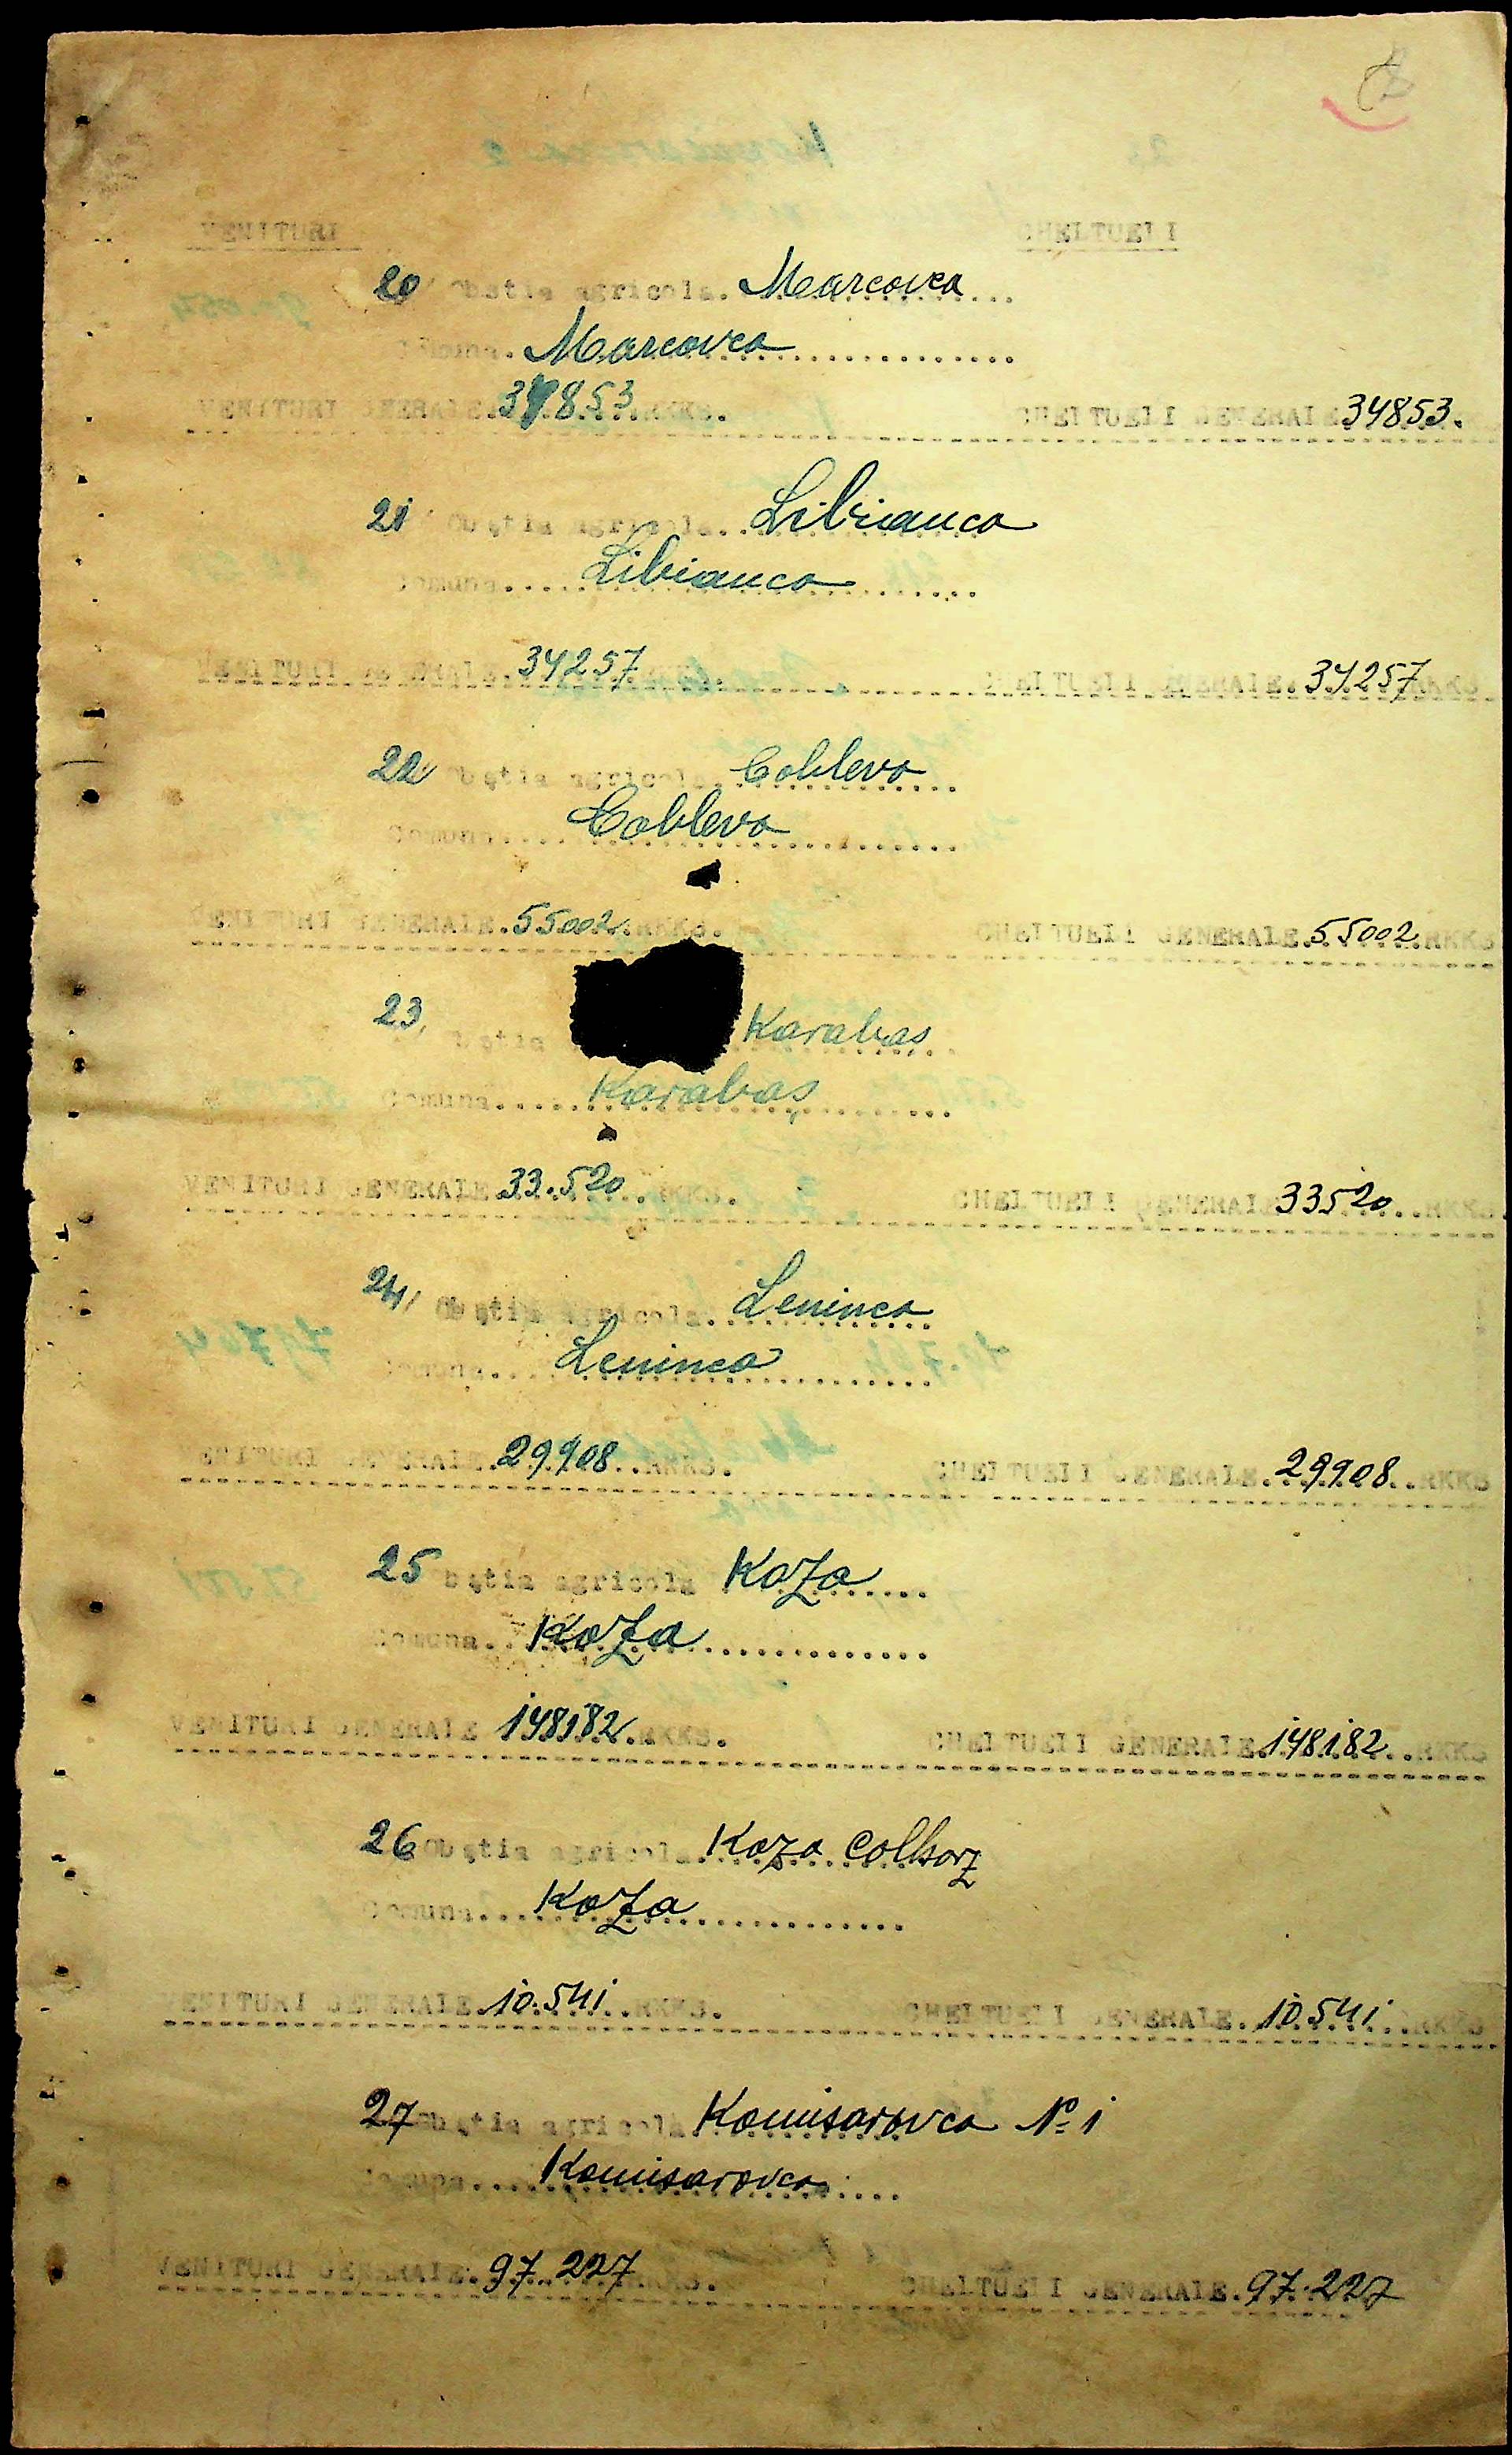 VENITURI CHELTUELI
20 Obstia agricola. Marcovca
Comuna. Marcovca
VENITURI GENERALE. 34853 RKKS. CHELTUELI GENERALE 34853.
21 Obștia agricola. Libianca
Comuna. Libianca
VENITURI GENERALE. 34257 CHELTUELI GENERALE. 34257 RKKS
22 Obștia agricola. Coblevo
Comuna. Coblevo
VENITURI GENERALE. 55002. RKKS. CHELTUELI GENERALE. 55002. RKKS
23 Obștia Karabas
Comuna. Karabaș
VENITURI GENERALE 33.520 RKKS. CHELTUELI GENERALE 33520 RKKS.
24 Obștia agricola. Leninca
Comuna. Leninca
VENITURI GENERALE. 29908 RKKS. CHELTUELI GENERALE. 29908 RKKS
25 bștia agricola Koza
Comuna. Koza
VENITURI GENERALE 148182. RKKS. CHELTUELI GENERALE. 148182 RKKS
26 Obștia agricola Koza Colhorz
Comuna. Koza
VENITURI GENERALE. 10.541 RKKS. CHELTUELI GENERALE. 10541 RKKS
27 Obștia agricola Komisarovca No 1
Comuna. Komisarovca
VENITURI GENERALE. 97.227 RKKS. CHELTUELI GENERALE. 97.227